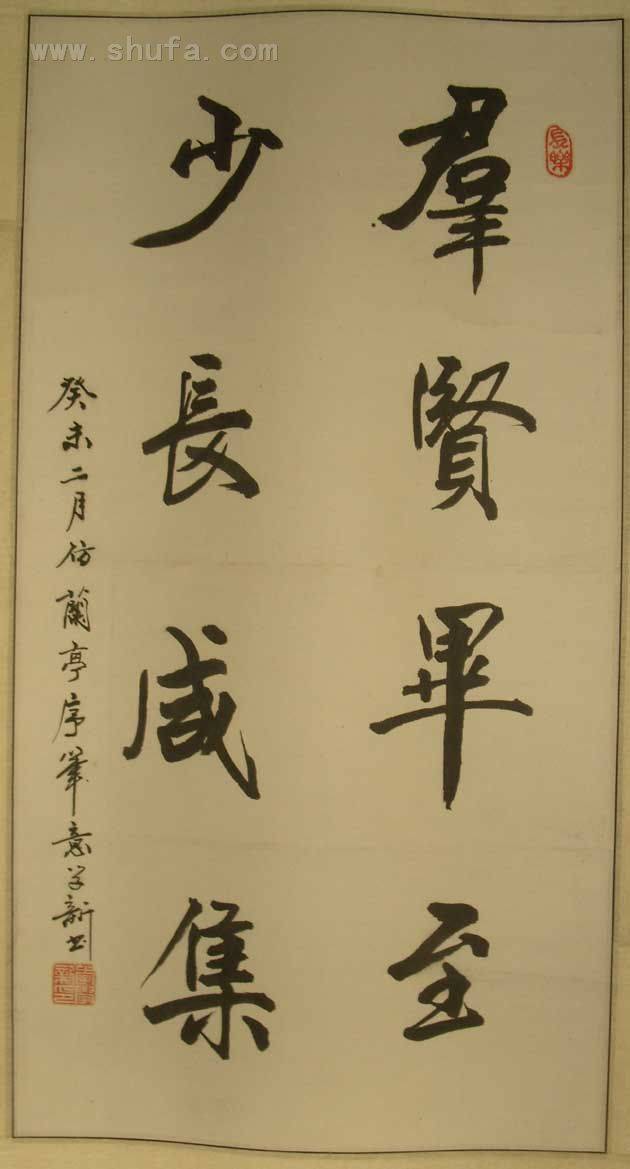 www.shufa.com
羣賢畢至
少長咸集
癸未二月仿蘭亭序筆意学新书
長樂